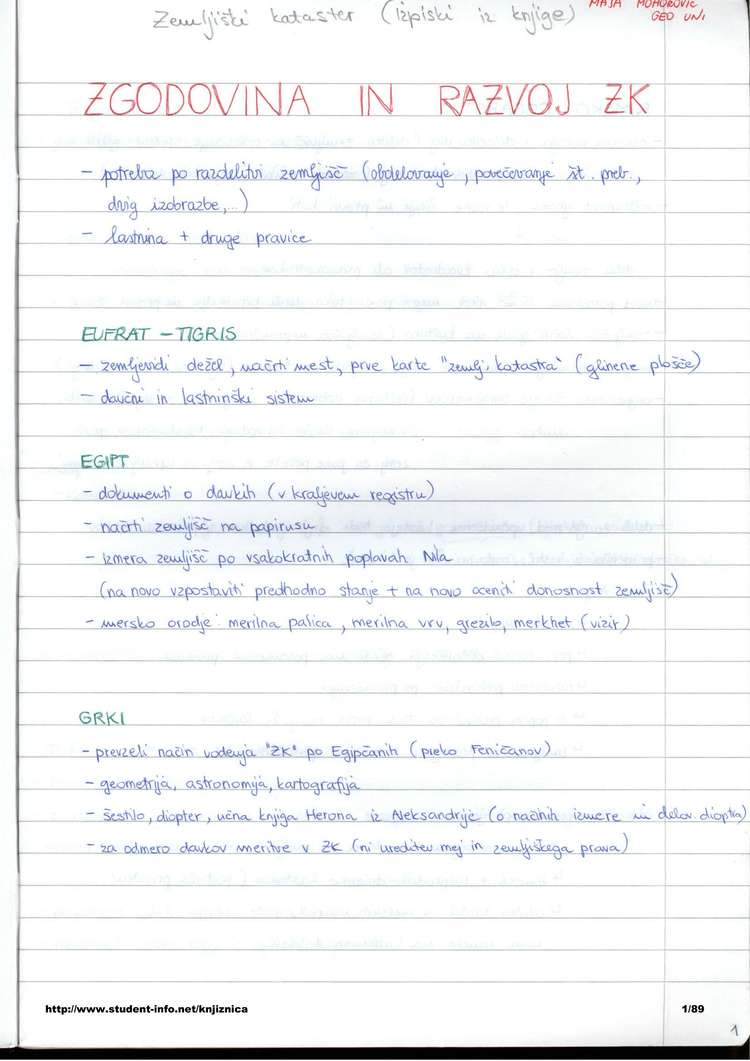 Zemljiški kataster (izpiski iz knjige)
MAJA MOHOROVIČ
GEO UNI
ZGODOVINA IN RAZVOJ ZK
- potreba po razdelitvi zemljišč (obdelovanje, povečovanje št. preb.,
dvig izobrazbe,...)
- lastnina + druge pravice
EUFRAT - TIGRIS
- zemljevidi dežel, načrti mest, prve karte "zemlj. katastra" (glinene plošče)
- davčni in lastninski sistem
EGIPT
- dokumenti o davkih (v kraljevem registru)
- načrti zemljišč na papirusu
- izmera zemljišč po vsakokratnih poplavah Nila
(na novo vzpostaviti predhodno stanje + na novo oceniti donosnost zemljišč)
- mersko orodje: merilna palica, merilna vrv, grezilo, merkhet (vizir)
GRKI
- prevzeli način vodenja "ZK" po Egipčanih (preko Feničanov)
- geometrija, astronomija, kartografija
- šestilo, diopter, učna knjiga Herona iz Aleksandrije (o načinih izmere in delov. dioptra)
- za odmero davkov meritve v ZK (ni ureditev mej in zemljiškega prava)
http://www.student-info.net/knjiznica
1/89
1